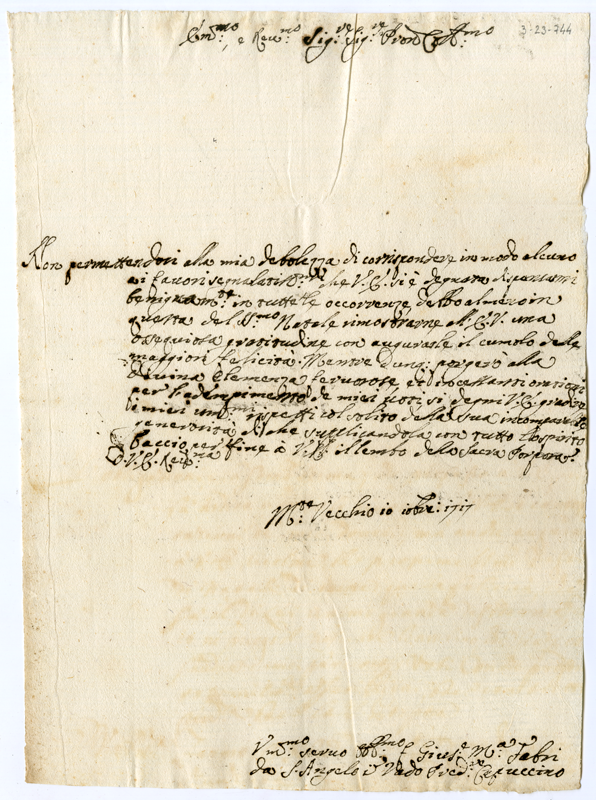 Em.mo, e Reu.mo Sig.re Sig.re Pron Col.mo
3-23-744
Non permettendosi alla mia debolezza di corrispondere in modo alcuno
a i fauori segnalatis.mi che V.E. si è degnata dispensarmi
benignam.te in tutte le occorrenze debbo almeno in
questa del SS.mo Natale rimostrarne all' E.V. una
ossequiosa gratitudine con augurarle il cumolo delle
maggiori felicità. Mentre dunq: porgerò alla
Diuina Clemenza feruorose, ed incessanti orationi
per l'adempimento de miei uoti si degni V.E. gradire
i miei um.mi rispetti col solito della sua incomparabile
generosità di che supplicandola con tutto lo spirito
baccio per fine à V.E. il lembo della Sacra Porpora.
D. V.E. Reu.ma
M.te Vecchio 10 xbre: 1717
Vm.mo seruo Giuse.e M.a Fabri
da S. Angelo in Vado Pred.re Capuccino